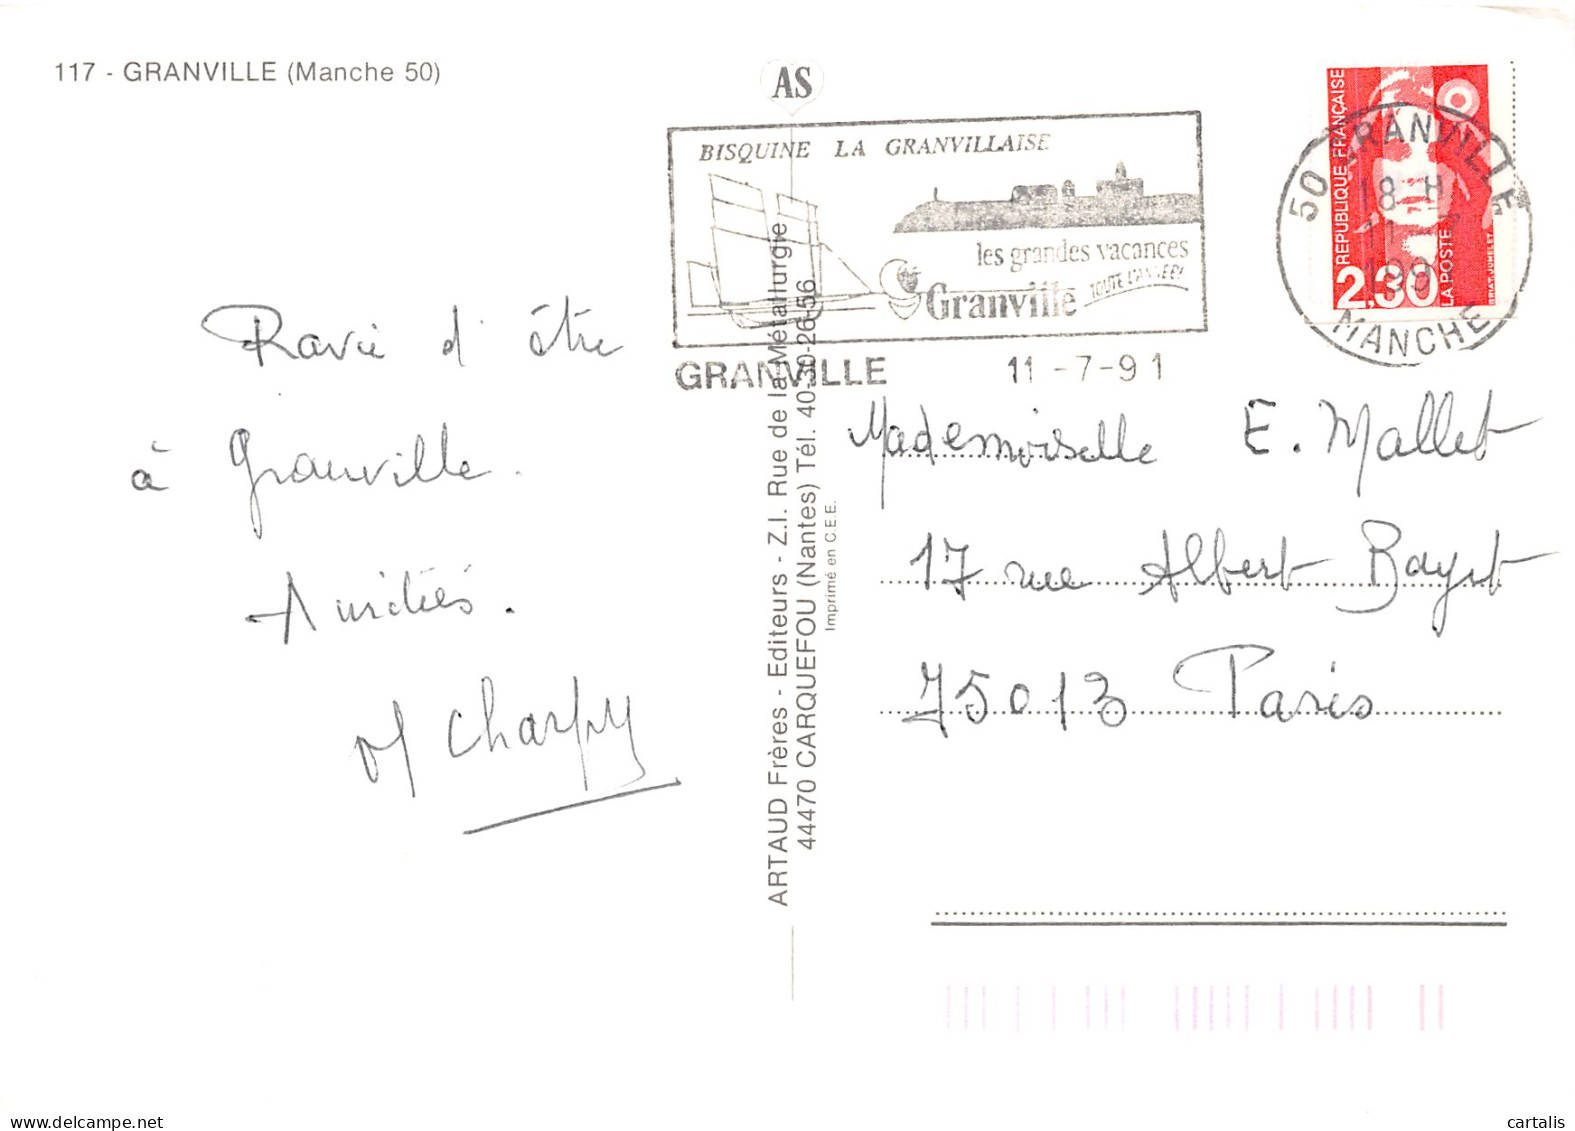 117 - GRANVILLE (Manche 50)
AS
BISQUINE LA GRANVILLAISE
les grandes vacances
Granville TOUTE L'ANNÉE!
GRANVILLE 11-7-91
50 GRANVILLE
18 H
11-7
199
MANCHE
REPUBLIQUE FRANÇAISE
2,30
LA POSTE
BRIAT.JUMELET
Ravie d'être
à Granville.
Amitiés.
M Charpy
ARTAUD Frères - Editeurs - Z.I. Rue de la Métallurgie
44470 CARQUEFOU (Nantes) Tél. 40-30-26-56
Imprimé en C.E.E.
Mademoiselle E. Mallet
17 rue Albert Bayet
75013 Paris
cartalis